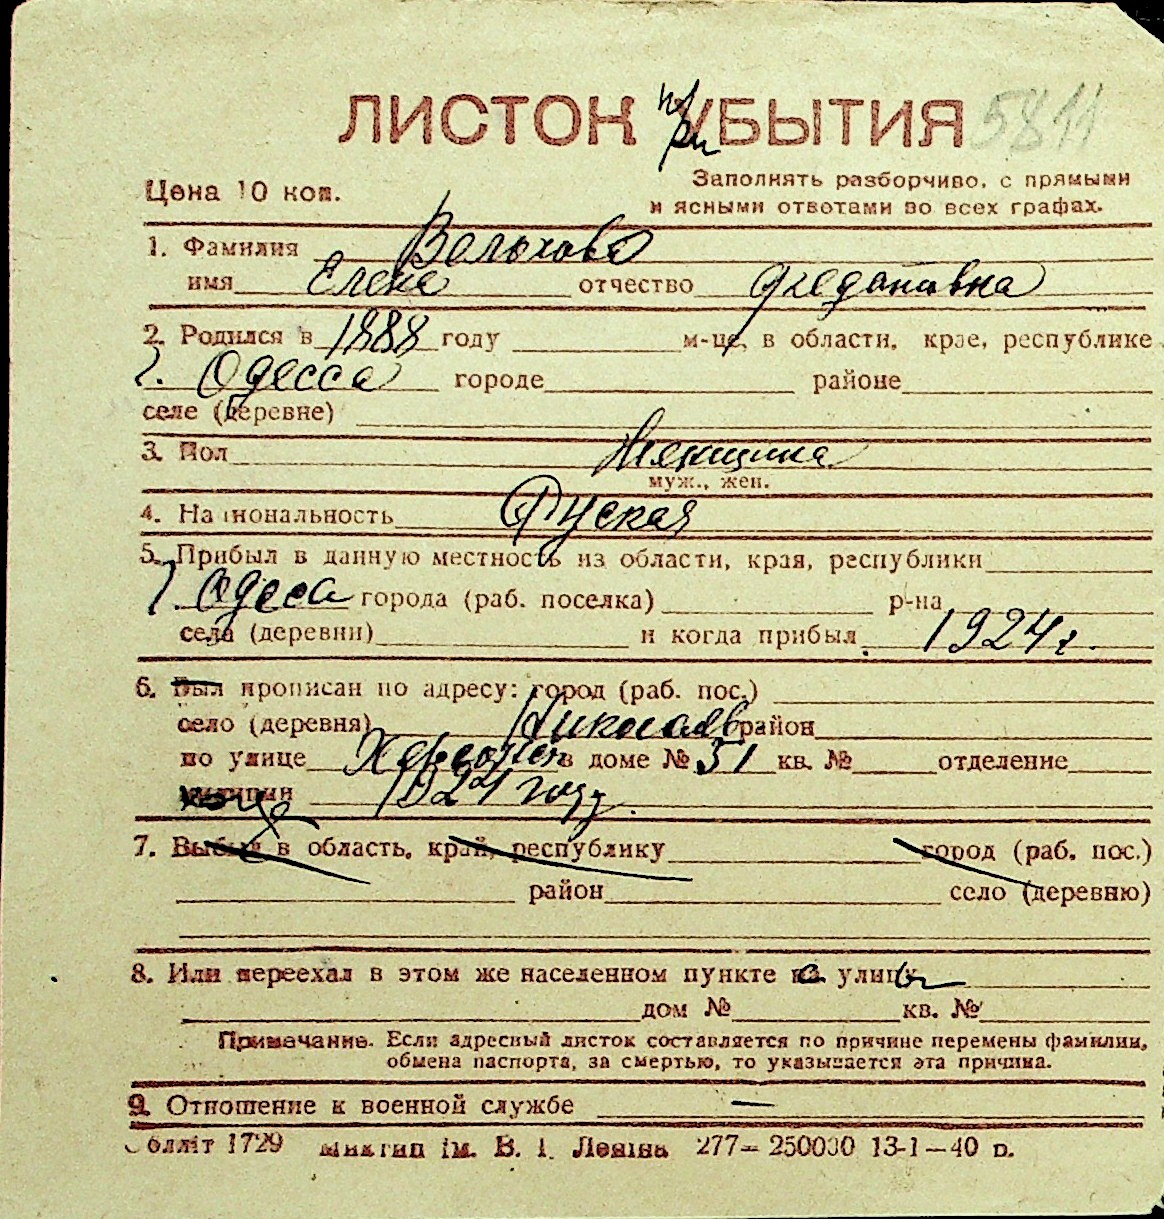 ЛИСТОК УБЫТИЯ при 5811
Цена 10 коп.
Заполнять разборчиво, с прямыми
и ясными ответами во всех графах.
1. Фамилия Вольхова
имя Елена отчество
2. Родился в 1888 году м-це, в области, крае, республике
г. Одесса городе районе
селе (деревне)
3. Пол Женщина
муж., жен.
4. Национальность Руская
5. Прибыл в данную местность из области, края, республики
г. Одеса города (раб. поселка) р-на
села (деревни) и когда прибыл 1924 г.
6. Был прописан по адресу: город (раб. пос.)
село (деревня) Николаев район
по улице Херсонск в доме № 51 кв. № отделение
милиции 1924 году.
7. Выбыл в область, край, республику город (раб. пос.)
район село (деревню)
8. Или переехал в этом же населенном пункте на улицу
дом № кв. №
Примечание. Если адресный листок составляется по причине перемены фамилии,
обмена паспорта, за смертью, то указывается эта причина.
9. Отношение к военной службе —
Обліт 1729 Миктип ім. В. І. Леніна 277—250000 13-1—40 р.